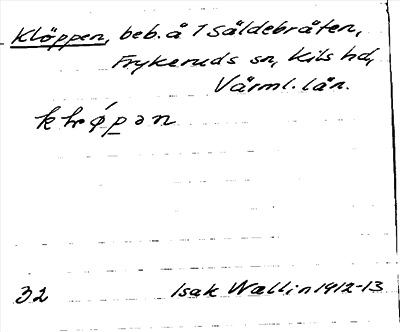 Klöppen, beb. å 1 Säldebråten,
Frykeruds sn, Kils hd,
Värml. län.
32
Isak Wallin 1912-13